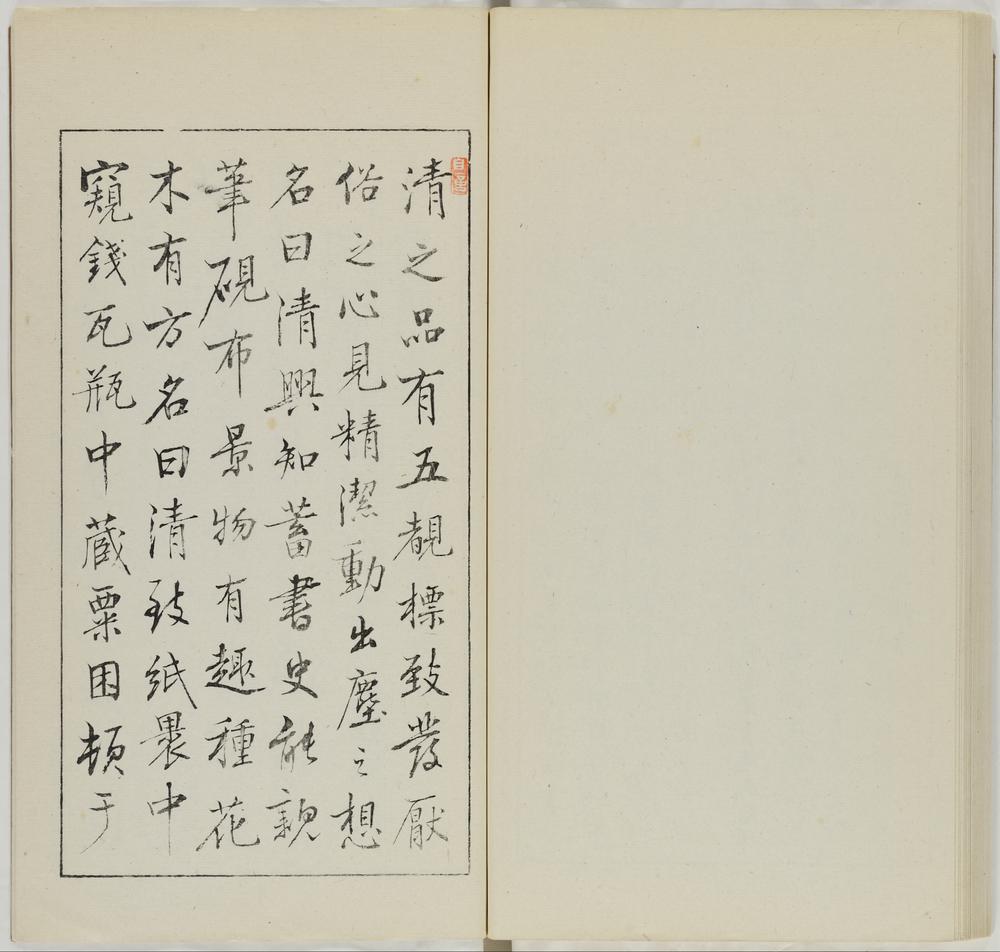 清之品有五覩標致發厭
俗之心見精潔動出塵之想
名曰清興知蓄書史能親
筆硯布景物有趣種花
木有方名曰清致紙裹中
窺錢瓦瓶中蔵粟困頓于